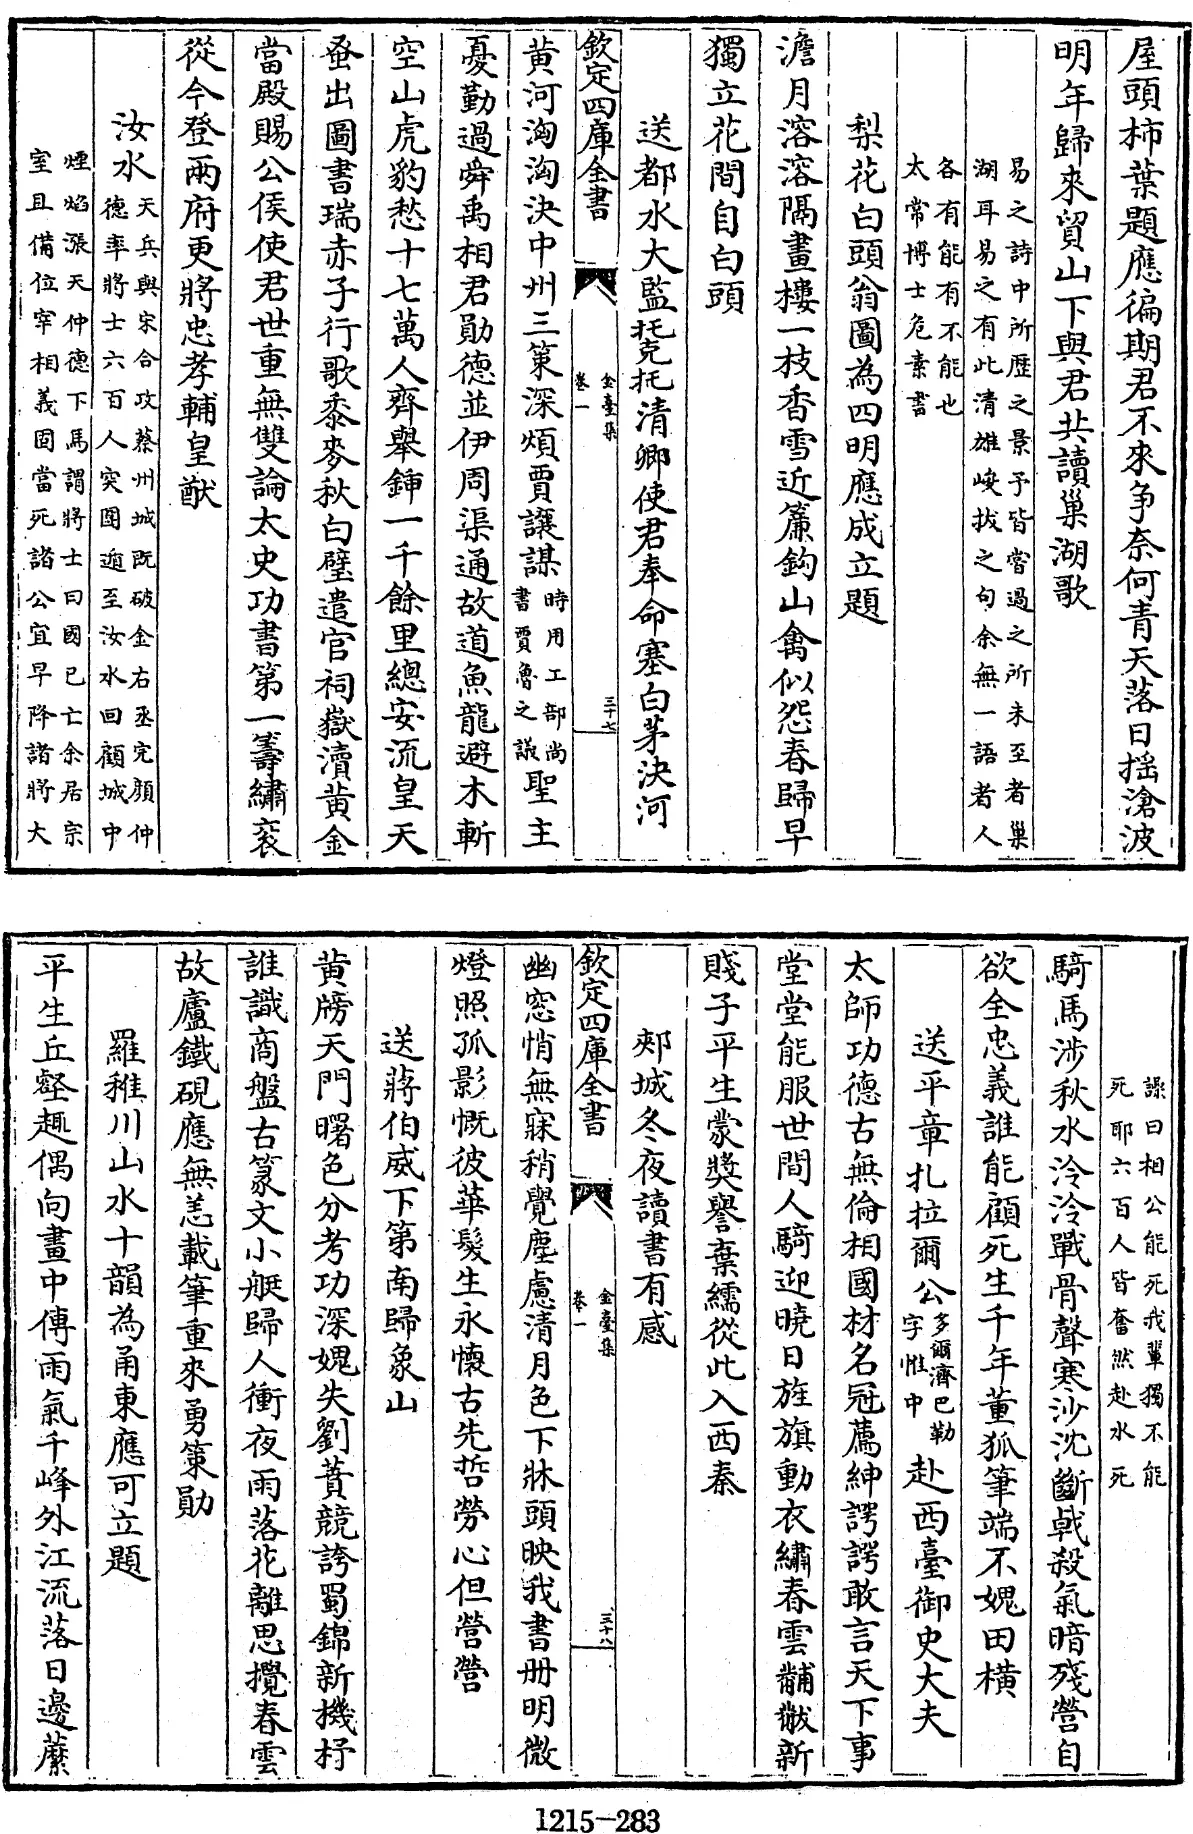 屋頭柿葉題應徧期君不來爭奈何青天落日揺滄波
明年歸來貿山下與君共讀巢湖歌
易之詩中所歴之景予皆嘗過之所未至者巢
湖耳易之有此清雄峻拔之句余無一語者人
各有能有不能也
太常博士危素書
梨花白頭翁圖為四明應成立題
澹月溶溶隔畫樓一枝香雪近簾鈎山禽似怨春歸早
獨立花間自白頭
送都水大監托克托清卿使君奉命塞白茅決河
欽定四庫全書
金臺集
卷一
三十七
黄河洶洶決中州三策深煩賈讓謀
時用工部尚
書賈魯之議
聖主
憂勤過舜禹相君勛德並伊周渠通故道魚龍避木斬
空山虎豹愁十七萬人齊舉鍤一千餘里總安流皇天
蚤出圖書瑞赤子行歌黍麥秋白璧遣官祠嶽瀆黄金
當殿賜公侯使君世重無雙論太史功書第一籌繡衮
從今登兩府更將忠孝輔皇猷
汝水
天兵與宋合攻蔡州城既破金右丞完顔仲
德率將士六百人突圍遁至汝水回顧城中
煙焰漲天仲德下馬謂將士曰國已亡余居宗
室且備位宰相義固當死諸公宜早降諸將大
譟曰相公能死我輩獨不能
死耶六百人皆奮然赴水死
騎馬涉秋水泠泠戰骨聲寒沙沈斷㦸殺氣暗殘營自
欲全忠義誰能顧死生千年董狐筆端不媿田橫
送平章扎拉爾公
多爾濟巴勒
字惟中
赴西臺御史大夫
太師功德古無倫相國材名冠薦紳諤諤敢言天下事
堂堂能服世間人騎迎曉日旌旗動衣繡春雲黼黻新
賤子平生蒙奬譽棄繻從此入西秦
郟城冬夜讀書有感
欽定四庫全書
金臺集
卷一
三十八
幽窓悄無寐稍覺塵慮清月色下牀頭映我書冊明微
燈照孤影慨彼華髮生永懷古先哲勞心但營營
送蔣伯威下第南歸象山
黄牓天門曙色分考功深媿失劉蕡競誇蜀錦新機杼
誰識商盤古篆文小艇歸人衝夜雨落花離思攪春雲
故廬鐵硯應無恙載筆重來勇策勛
羅稚川山水十韻為甬東應可立題
平生丘壑趣偶向畫中傳雨氣千峰外江流落日邊蘼
1215-283